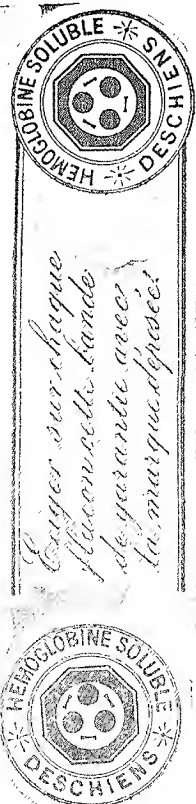 HEMOGLOBINE SOLUBLE
DESCHIENS
Exiger sur chaque
flacon cette bande
de garantie avec
la marque déposée.
HEMOGLOBINE SOLUBLE
DESCHIENS